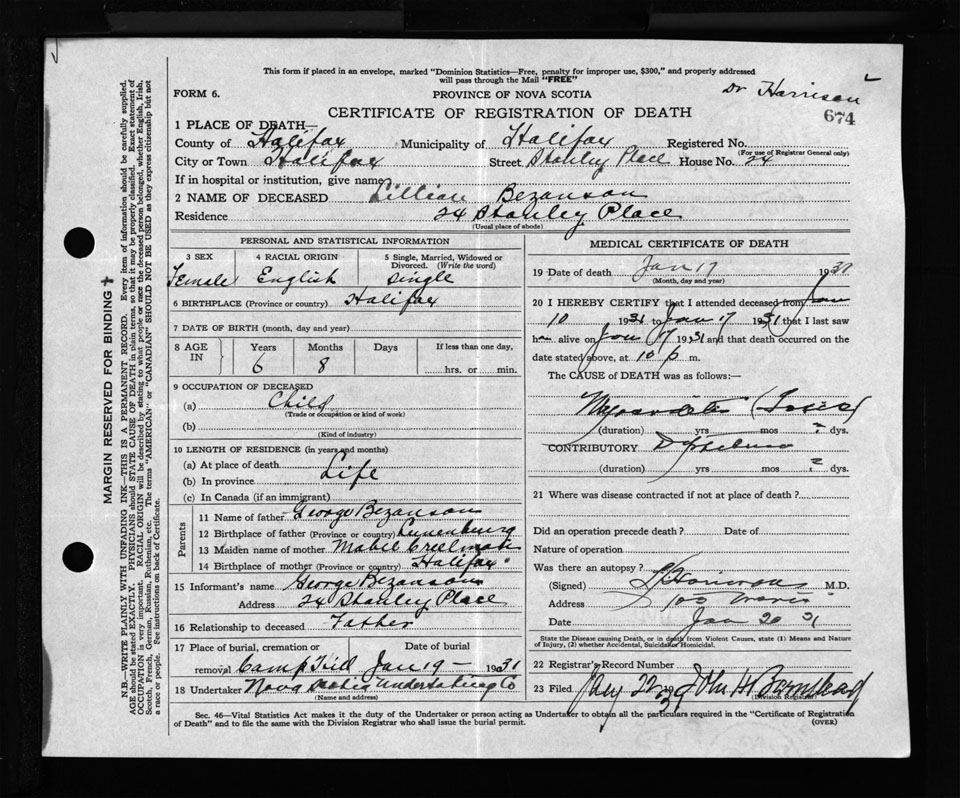 This form if placed in an envelope, marked "Dominion Statistics—Free, penalty for improper use, $300," and properly addressed
will pass through the Mail "FREE"
FORM 6.
PROVINCE OF NOVA SCOTIA
Dr Harrison
CERTIFICATE OF REGISTRATION OF DEATH
674
1 PLACE OF DEATH—
County of Halifax Municipality of Halifax Registered No.
(For use of Registrar General only)
City or Town Halifax Street Stanley Place House No. 24
If in hospital or institution, give name
2 NAME OF DECEASED Lillian Bezanson
Residence 24 Stanley Place
(Usual place of abode)
PERSONAL AND STATISTICAL INFORMATION
3 SEX 4 RACIAL ORIGIN 5 Single, Married, Widowed or
Divorced. (Write the word)
Female English Single
6 BIRTHPLACE (Province or country) Halifax
7 DATE OF BIRTH (month, day and year)
8 AGE IN Years Months Days If less than one day,
6 8 hrs. or min.
9 OCCUPATION OF DECEASED
(a) Child
(Trade or occupation or kind of work)
(b)
(Kind of industry)
10 LENGTH OF RESIDENCE (in years and months)
(a) At place of death
(b) In province Life
(c) In Canada (if an immigrant)
Parents
11 Name of father George Bezanson
12 Birthplace of father (Province or country) Lunenburg
13 Maiden name of mother Mabel Creelman
14 Birthplace of mother (Province or country) Halifax
15 Informant's name George Bezanson
Address 24 Stanley Place
16 Relationship to deceased Father
17 Place of burial, cremation or Date of burial
removal Camp Hill Jan 19 - 1931
18 Undertaker Nova Scotia Undertaking Co
(Name and address)
MEDICAL CERTIFICATE OF DEATH
19 Date of death Jan 17 1931
(Month, day and year)
20 I HEREBY CERTIFY that I attended deceased from Jan
10 1931 to Jan 17 1931 that I last saw
h alive on Jan 17 1931 and that death occurred on the
date stated above, at 10 p m.
The CAUSE of DEATH was as follows:—
Myocarditis (Toxic)
(duration) yrs mos ? dys.
CONTRIBUTORY Diphtheria
(duration) yrs. mos. ? dys.
21 Where was disease contracted if not at place of death?
Did an operation precede death? Date of
Nature of operation
Was there an autopsy?
(Signed) Harrison M.D.
Address
Date Jan 20 31
State the Disease causing Death, or in death from Violent Causes, state (1) Means and Nature
of Injury, (2) whether Accidental, Suicidal or Homicidal.
22 Registrar's Record Number
23 Filed Jany 22 1931 John H Barnstead
(Division Registrar)
Sec. 46—Vital Statistics Act makes it the duty of the Undertaker or person acting as Undertaker to obtain all the particulars required in the "Certificate of Registration
of Death" and to file the same with the Division Registrar who shall issue the burial permit.
(OVER)
MARGIN RESERVED FOR BINDING
N.B.—WRITE PLAINLY WITH UNFADING INK—THIS IS A PERMANENT RECORD. Every item of information should be carefully supplied.
AGE should be stated EXACTLY. PHYSICIANS should STATE CAUSE OF DEATH in plain terms, so that it may be properly classified. Exact statement of
OCCUPATION is very important. RACIAL ORIGIN will be described by stating to what people or race the deceased person belonged, whether English, Irish,
Scotch, French, German, Russian, Ruthenian, etc. The terms "AMERICAN" or "CANADIAN" SHOULD NOT BE USED as they express citizenship but not
a race or people. See instructions on back of Certificate.